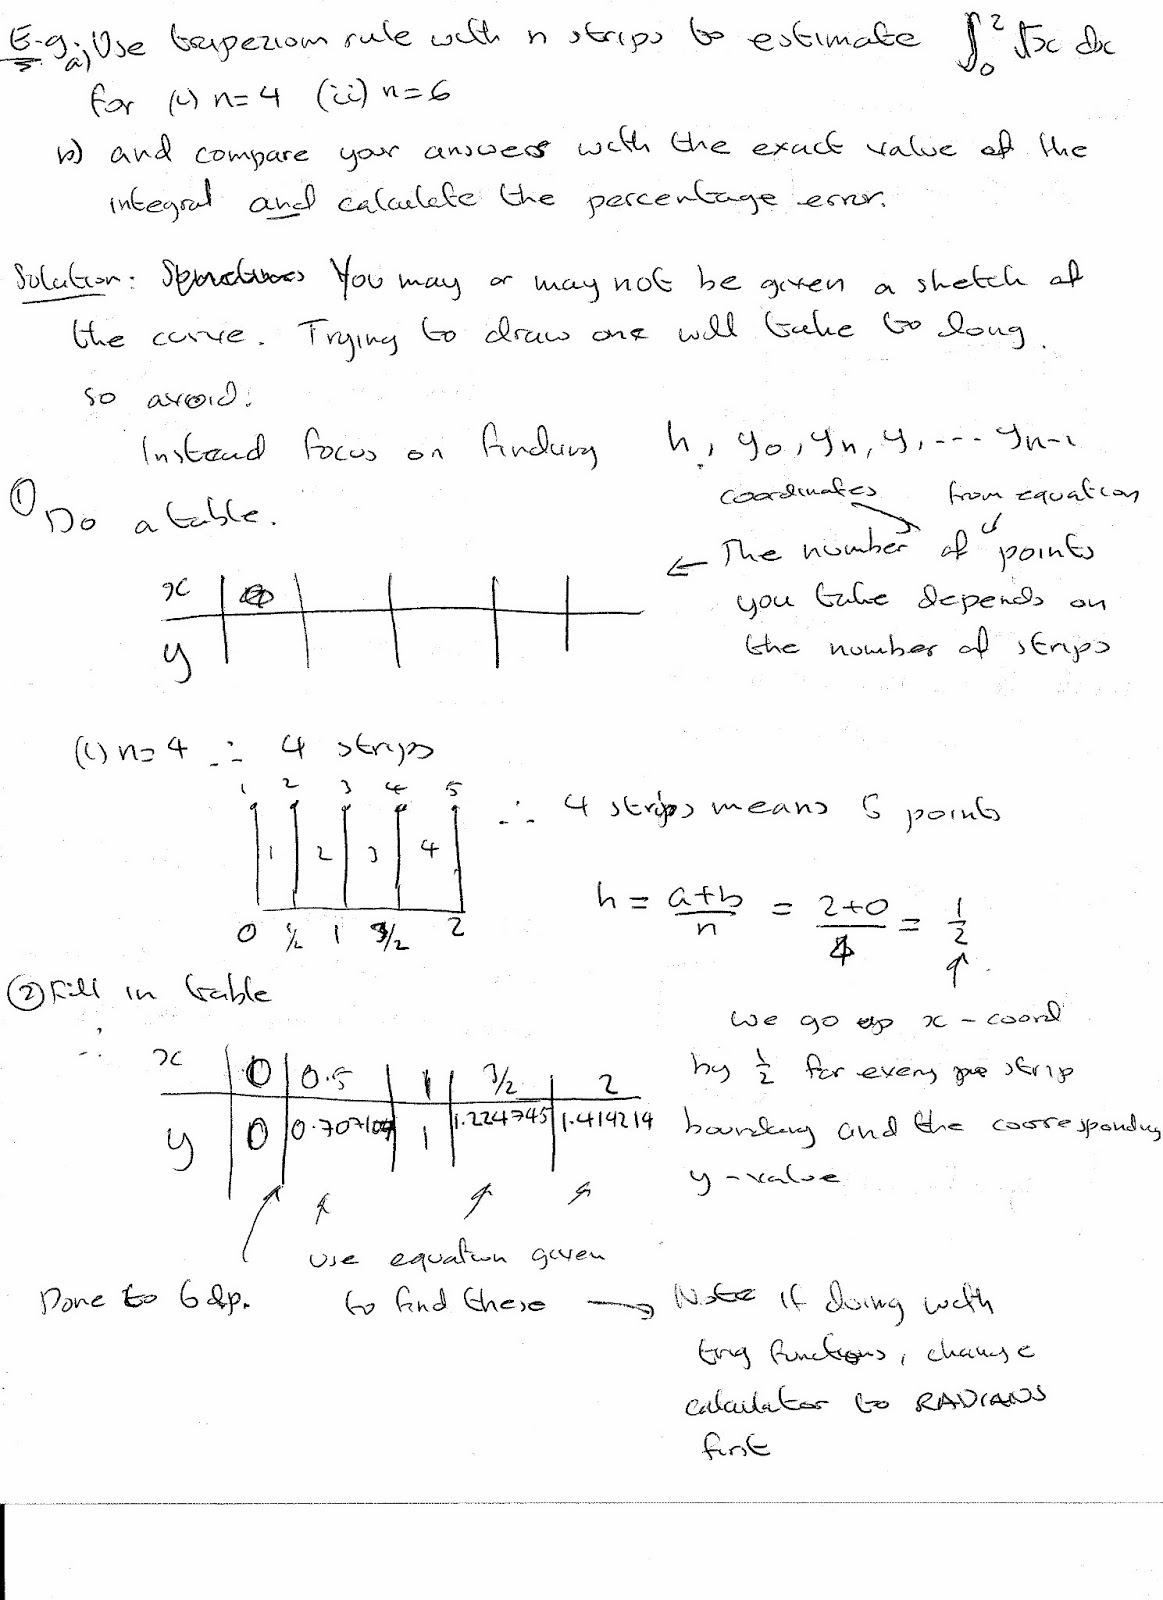 E.g. a) Use trapeziom rule with n strips to estimate ∫₀² √x dx
for (i) n=4 (ii) n=6
b) and compare your answers with the exact value of the
integral and calculate the percentage error.
Solution: You may or may not be given a sketch of
the curve. Trying to draw one will take to long.
so avoid.
Instead focus on finding h, y₀, yₙ, y₁ --- yₙ₋₁
coordinates from equation
① Do a table.
← The number of points
you take depends on
the number of strips
x
y
(i) n=4 ∴ 4 strips
1 2 3 4 5
1 2 3 4
0 1/2 1 3/2 2
∴ 4 strips means 5 points
h = a+b/n = 2+0/4 = 1/2
② Fill in table
we go up x-coord
by 1/2 for every strip
boundary and the corresponding
y-value
∴ x 0 0.5 1 3/2 2
y 0 0.707107 1 1.224745 1.414214
use equation given
to find these
Done to 6dp.
Note if doing with
trig functions, change
calculator to RADIANS
first